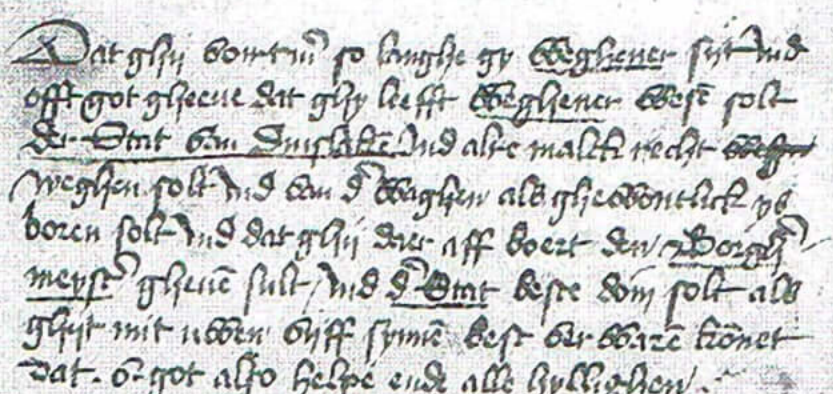 Dat ghij vortm̄ so langhe gy Weghener sijt Ind
offt got gheeve dat ghy leefft Weghener Wesē solt
der Stat van Dinslakē Ind alre malck recht
weghen solt Ind van d̄ Waghen als gheWontlick ys
boren solt Ind dat ghij daer aff boert den Borgh
meyst̄ ghevē sult, Ind d̄ Stat beste doin solt als
ghijt mit uWen vijff synnē best verWarē kōnet
Dat. v̄ got also helpe ende alle hyllighen.